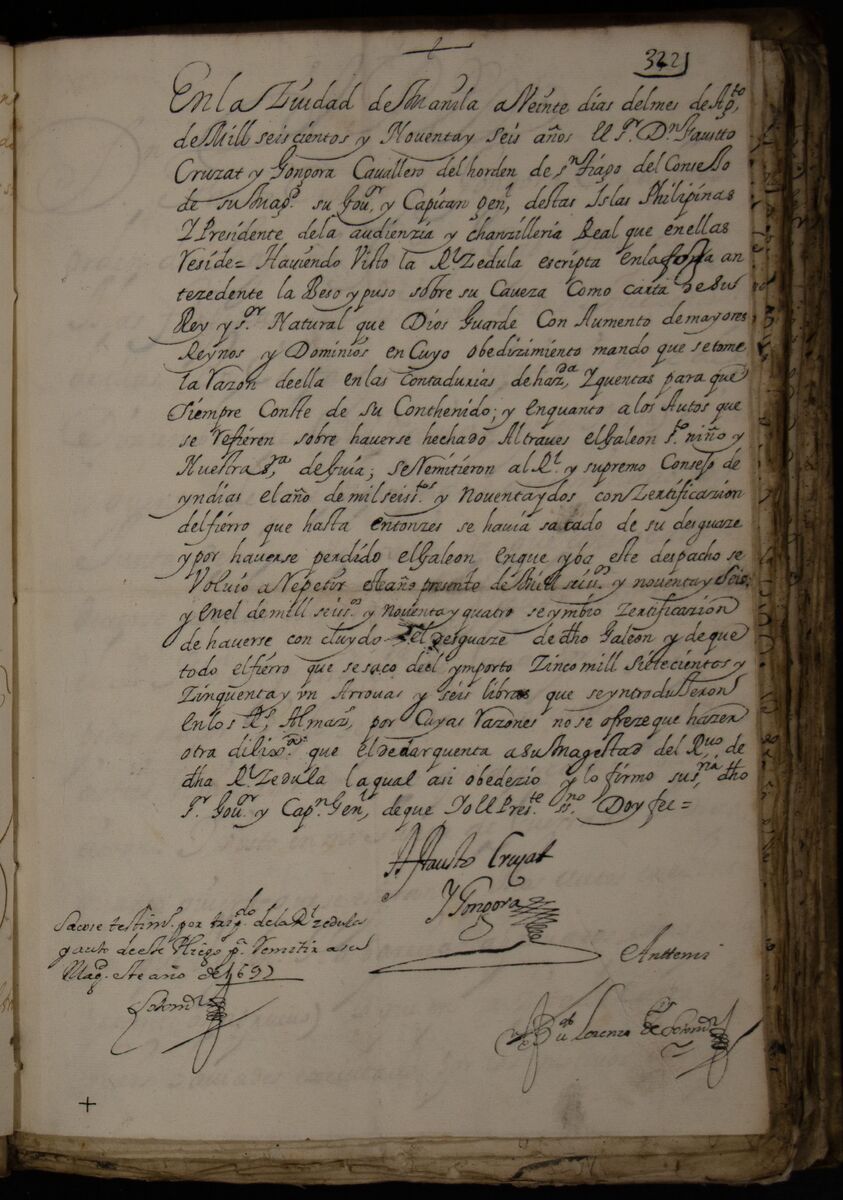 322
En la Ziudad de Manila a Veinte dias del mes de Ag.to
de Mill seiscientos y Noventa y seis años El S.r D.n Fausto
Cruzat y Gongora Cavallero del horden de s.n tiago del Consello
de su Mag.d su Gou.r y Capitan Gen.l destas Islas Philipinas
Y Presidente de la audienzia y chanzilleria Real que en ellas
reside= Hauiendo Visto la R.l Zedula escripta en la foxa an
tezedente la Beso y puso sobre su Caueza Como carta de su
Rey y s.or Natural que Dios Guarde Con Aumento de mayores
Reynos y Dominios en Cuyo obedizimiento mandó que se tome
la razon de ella en las Contadurias de haz.da y quentas para que
Siempre Conste de su Conthenido; y en quanto a los Autos que
se refieren sobre hauerse hechado Al traues el Galeon s.to niño y
Nuestra s.ra de Guia; se Remitieron al R.l y supremo Consejo de
yndias el año de mil seis.tos y noventa y dos con Zertificazion
del fierro que hasta entonzes se hauia sacado de su desguaze
y por hauerse perdido el Galeon en que yba este despacho se
Voluio a Repetir este año presente de Mill seis.os y noventa y seis
y en el de mill seis.os y noventa y quatro se ymbio Zertificazion
de hauerse concluydo el desguaze de dho Galeon y de que
todo el fierro que se saco de el ymporto Zinco mill Sietecientos y
Zinquenta y vn Arrouas y seis libras que se yntroduxeron
en los R.s Almaz.s por Cuyas razones no se ofreze que hazer
otra dilix.a que el de dar quenta a su Magestad del R.uo de
dha R.l Zedula la qual asi obedezio y lo firmo su s.ria dho
S.r Gou.or y Cap.n Gen.l de que Yo el Pres.te ss.no Doy fee=
D Fausto Cruzat
Y Gongora
Antemi
Sacose testim.o por trip.do de la R.l zedula
y auto de este Pliego p.a remitir a su
Mag.d este año de 1697
Lorenzo